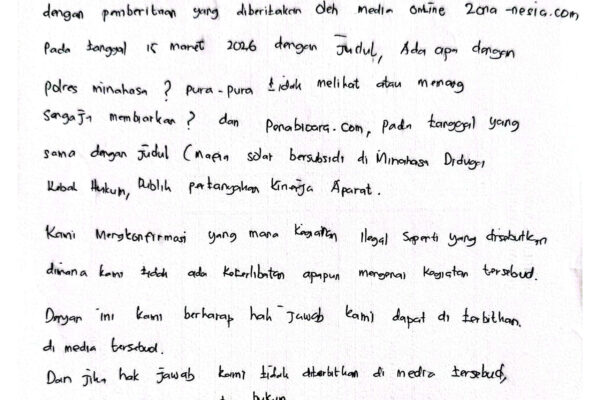 dengan pemberitaan yang diberitakan oleh media online Zona-nesia.com
Pada tanggal 15 maret 2026 dengan Judul, Ada apa dengan
Polres minahasa ? pura-pura tidak melihat atau memang
Sengaja membiarkan ? dan Penabicara.com, pada tanggal yang
sama dengan judul (mafia solar bersubsidi di Minahasa Diduga
Kebal Hukum, Publik pertanyakan Kinerja Aparat.
Kami Mengkonfirmasi yang mana kegiatan Ilegal Seperti yang disebutkan
dimana kami tidak ada keterlibatan apapun mengenai kegiatan tersebud.
Dengan ini kami berharap hak Jawab kami dapat di terbitkan.
di media tersebud.
Dan jika hak jawab kami tidak diterbitkan di media tersebud,
hukum